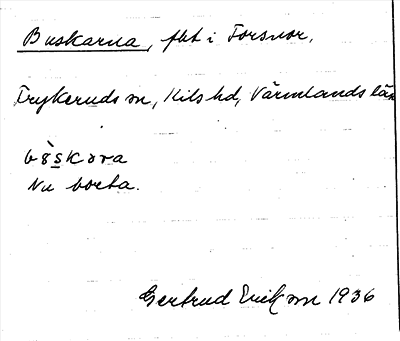 Buskarna, flt i Forsnor.
Frykeruds sn, Kils hd, Värmlands län
bò̤skɑra
Nu borta.
Gertrud Ericson 1936